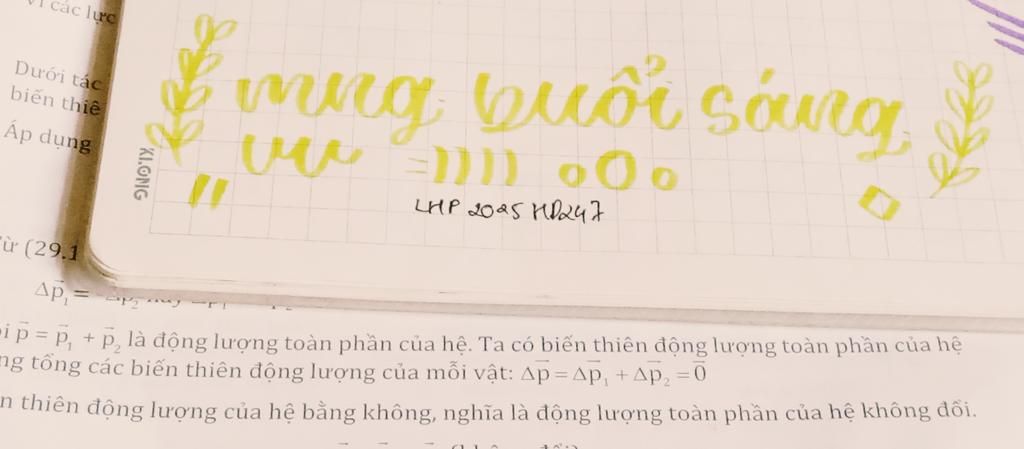 vì các lực
Dưới tác
biến thiê
Áp dụng
mng buổi sáng
vu =)))) oOo
KLONG
LHP 2025 HD247
Từ (29.1
Δp⃗₁ = -Δp⃗₂ hay
p⃗ = p⃗₁ + p⃗₂ là động lượng toàn phần của hệ. Ta có biến thiên động lượng toàn phần của hệ
ng tổng các biến thiên động lượng của mỗi vật: Δp⃗ = Δp⃗₁ + Δp⃗₂ = 0⃗
n thiên động lượng của hệ bằng không, nghĩa là động lượng toàn phần của hệ không đổi.